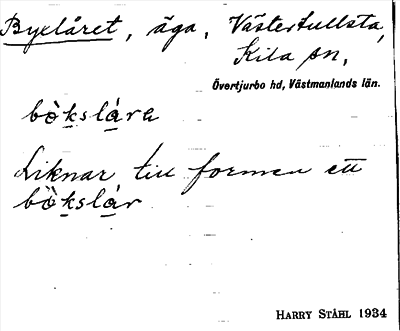 Byxlåret, äga, Västertullsta,
Kila sn,
Övertjurbo hd, Västmanlands län.
bò̀ksla̱ra
Liknar till formen ett
bò̀ksla̱r
HARRY STÅHL 1934